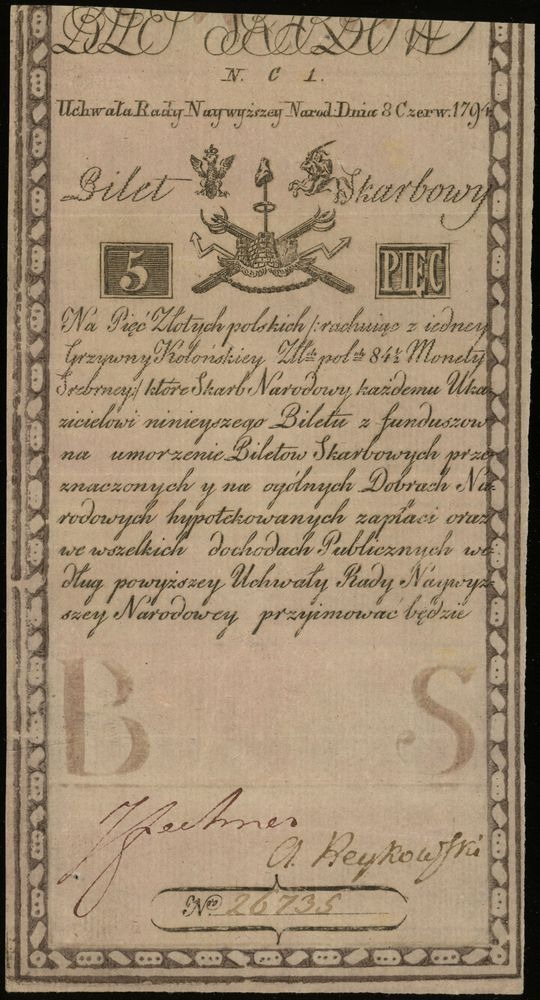 BILET SKARBOWY
N. C 1.
Uchwała Rady Naywyższey Narod. Dnia 8 Czerw. 1794
Bilet Skarbowy
5 PIĘC
Na Pięć Złotych polskich /: rachuiąc z iedney
Grzywny Kolońskiey Złł: pol: 84½ Monety
Srebrney :/ które Skarb Narodowy każdemu Uka
zicielowi ninieyszego Biletu z funduszow
na umorzenie Biletow Skarbowych prze
znaczonych y na ogólnych Dobrach Na-
rodowych hypotekowanych zapłaci oraz
we wszelkich dochodach Publicznych we
dług powyższey Uchwały Rady Naywyż
szey Narodowey przyimować będzie
B S
A. Reykowski
Nro 26735